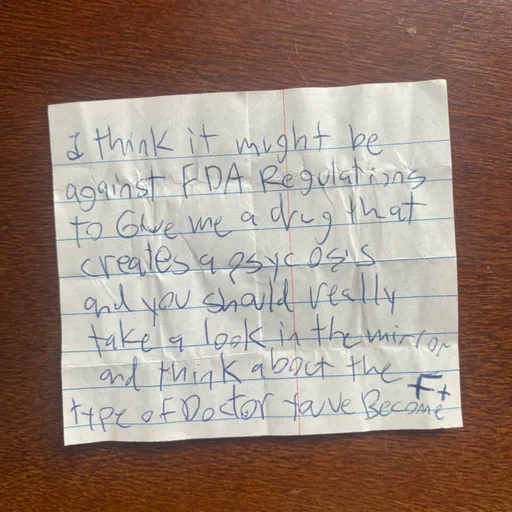 I think it might be
against FDA Regulations
to Give me a drug that
creates a psycosis
and you should really
take a look in the mirror
and think about the
type of Doctor youve Become
F+